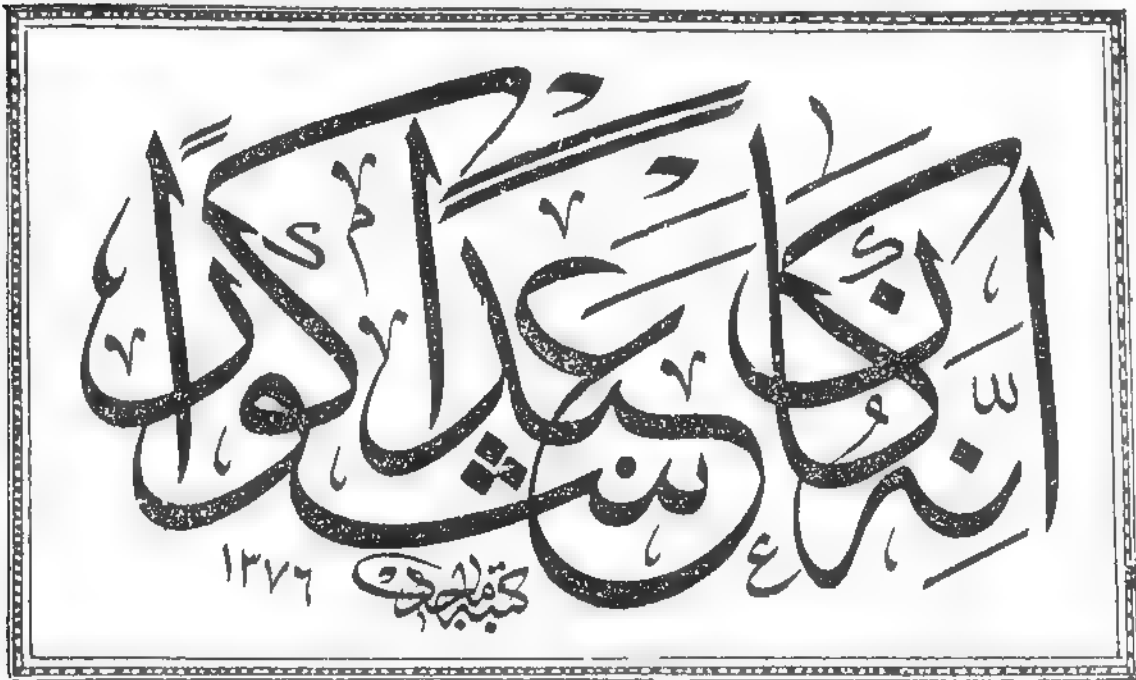 إِنَّهُ كَانَ عَبْدًا شَكُورًا
كتبه ماجد
١٣٧٦